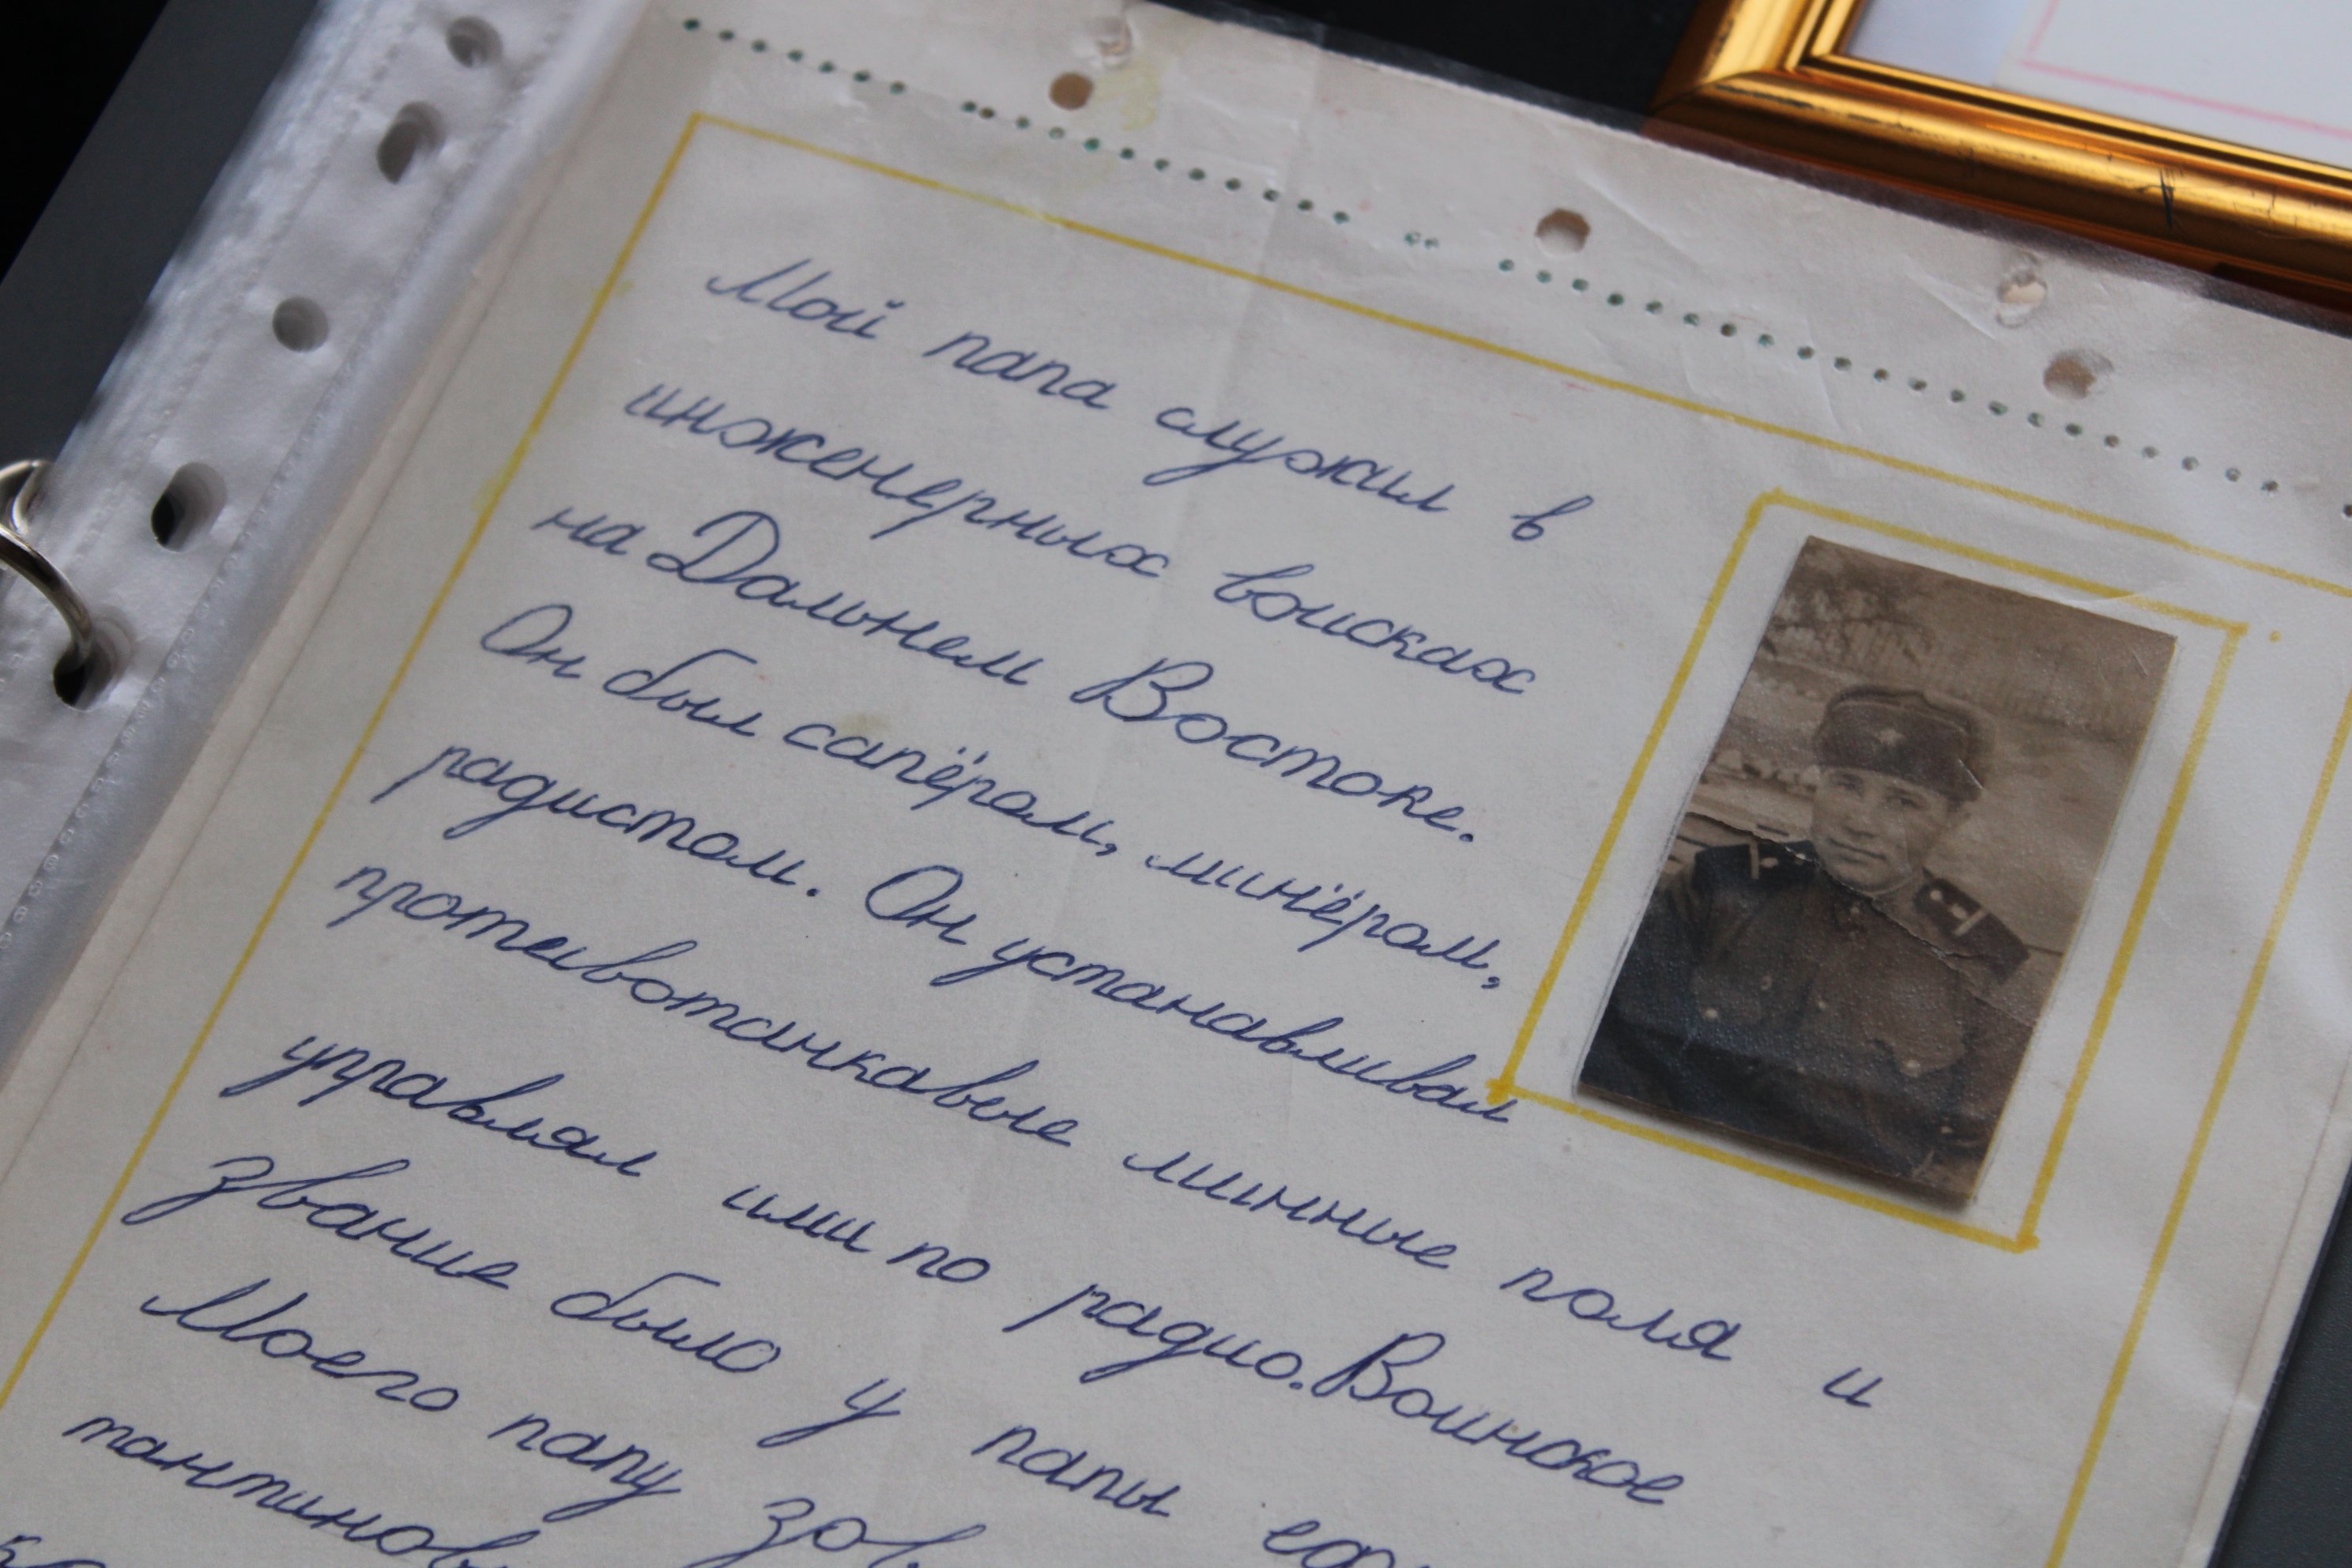 Мой папа служил в
инженерных войсках
на Дальнем Востоке.
Он был сапёром, минёром,
радистом. Он устанавливал
противотанкавые минные поля и
управлял ими по радио. Воинское
звание было у папы
Моего папу зов
тантинов